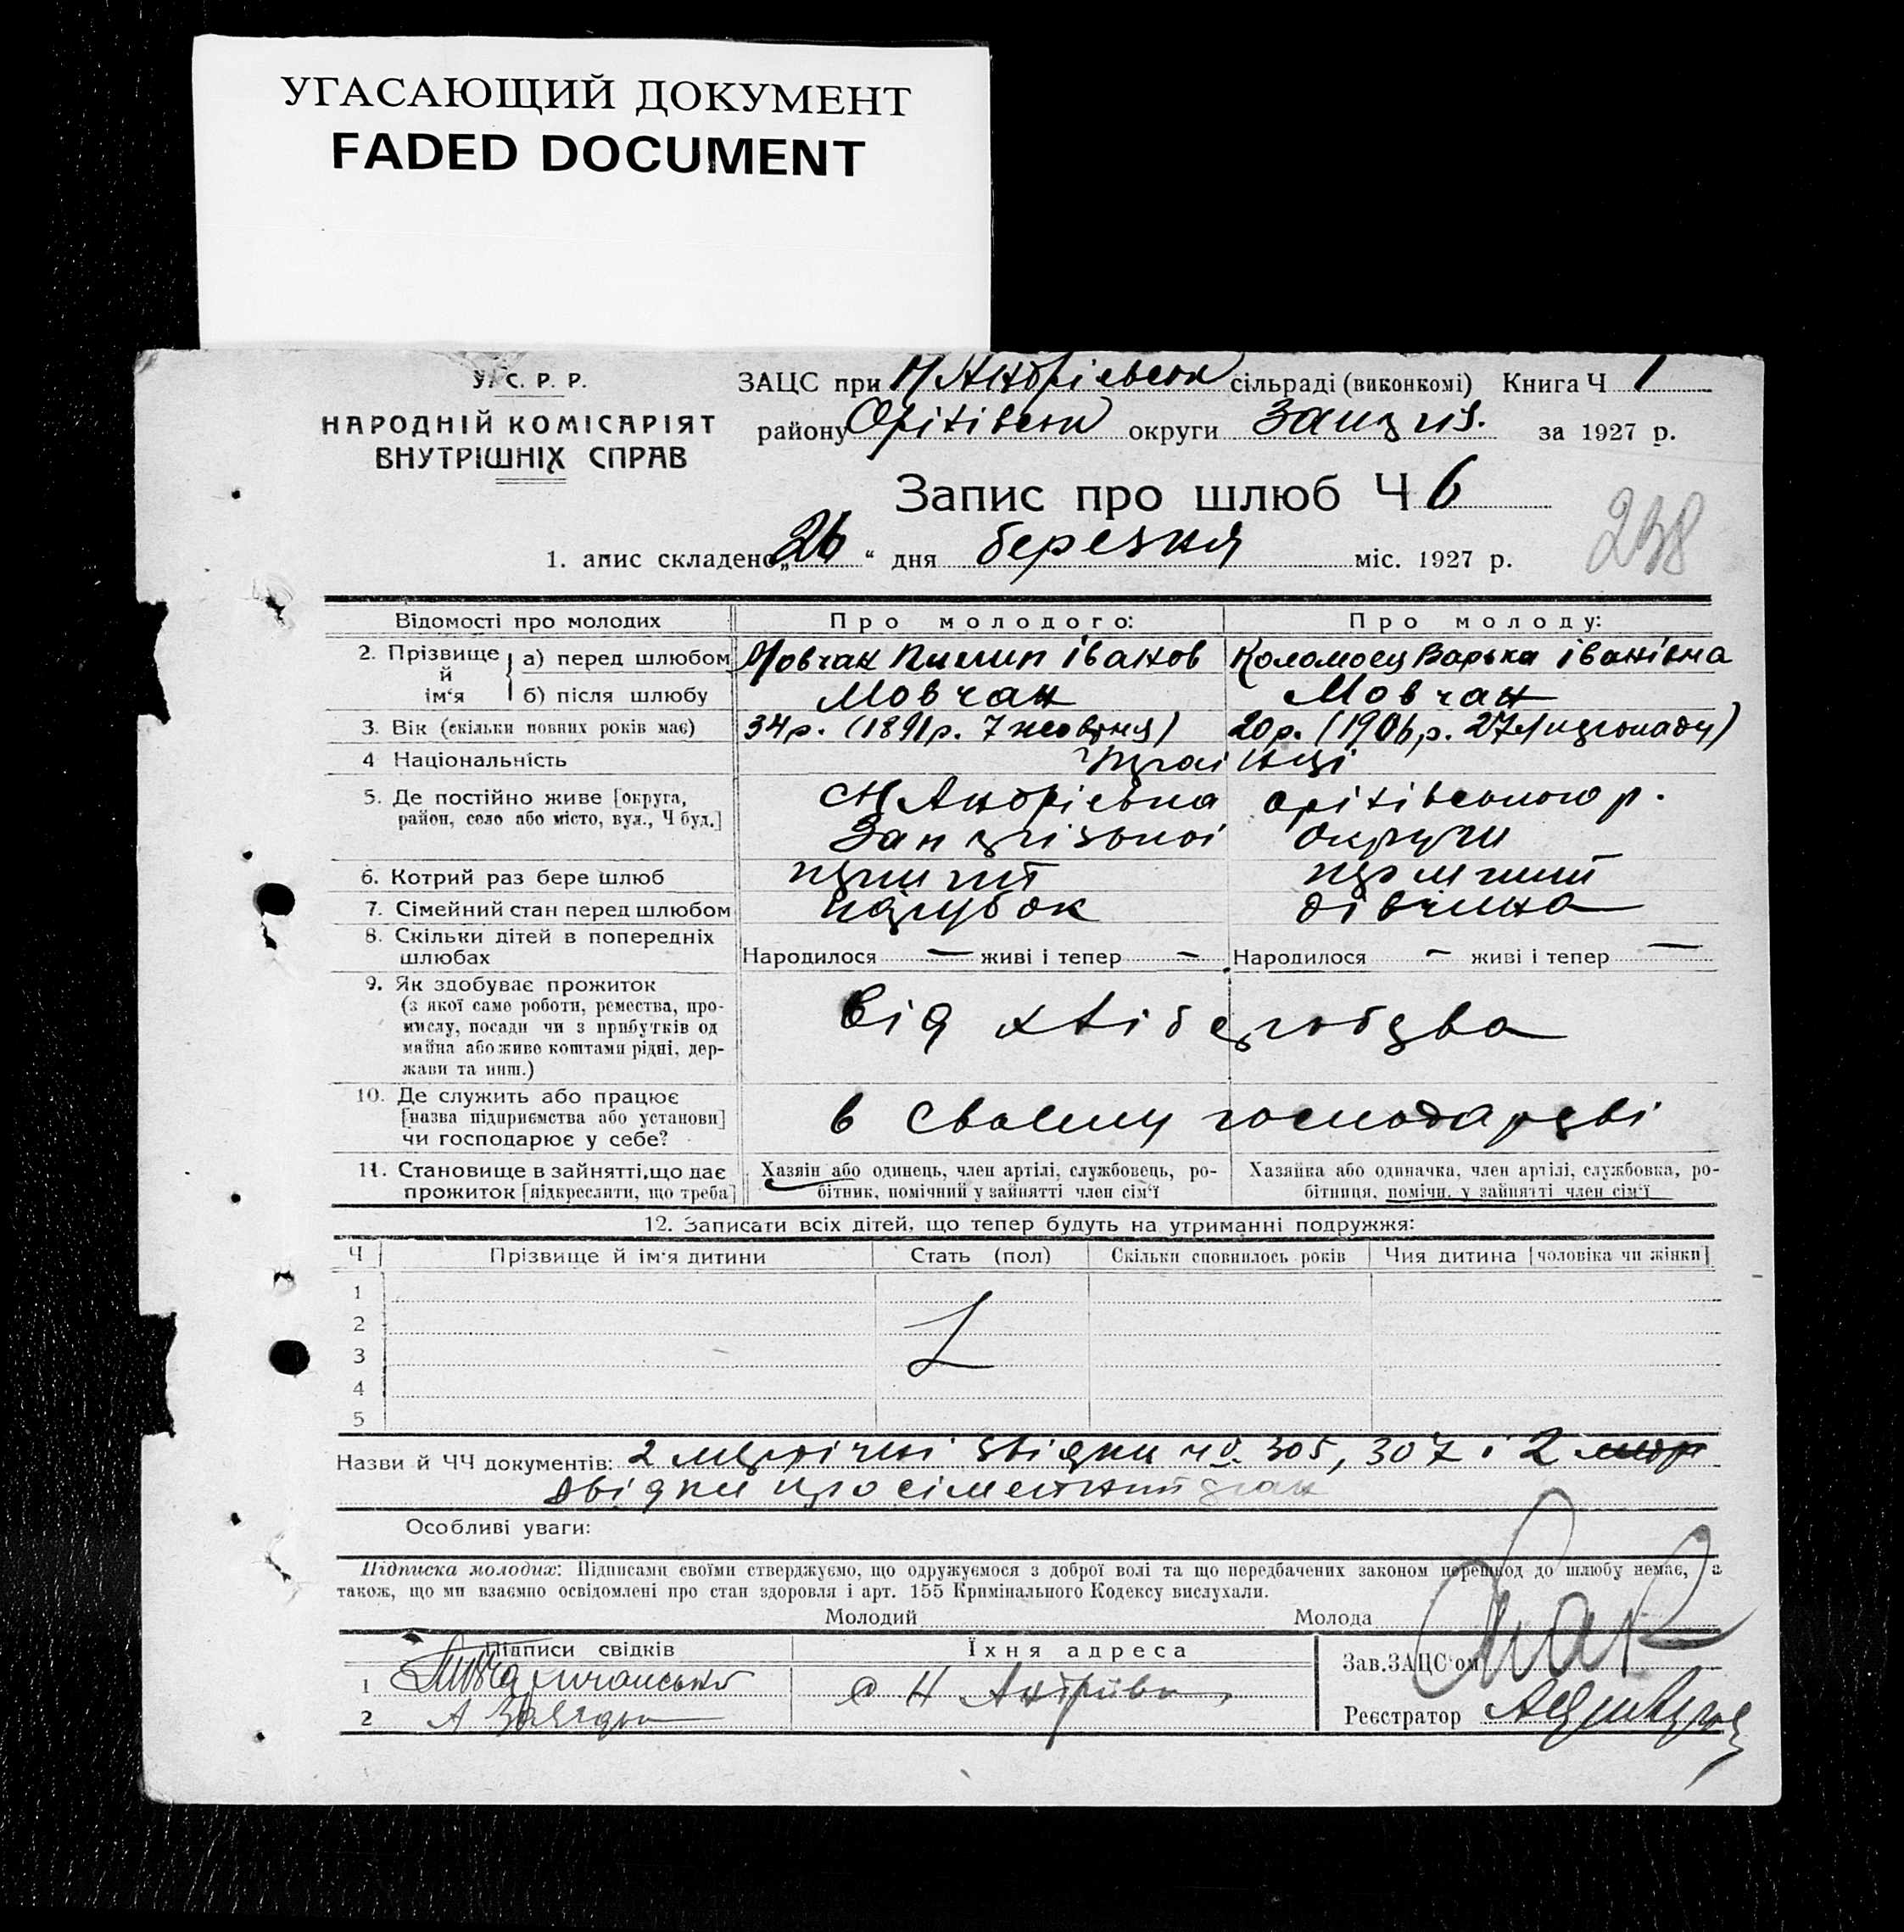 УГАСАЮЩИЙ ДОКУМЕНТ
FADED DOCUMENT
У. С. Р. Р.
НАРОДНІЙ КОМІСАРІЯТ
ВНУТРІШНІХ СПРАВ
ЗАЦС при Н Андріевськ сільраді (виконкомі) Книга Ч 1
району Оріхівськ округи Запоріз. за 1927 р.
Запис про шлюб Ч 6
238
1. апис складено „26“ дня березня міс. 1927 р.
Відомості про молодих
Про молодого:
Про молоду:
2. Прізвище й ім'я
а) перед шлюбом
Мовчан Пилип Іванов
Коломоец Варька Іванівна
б) після шлюбу
Мовчан
Мовчан
3. Вік (скільки повних років має)
34р. (1891р. 7 жовтня)
20р. (1906р. 27 Листопаду)
4 Національність
Українці
5. Де постійно живе [округа,
район, село або місто, вул., Ч буд.]
с Н Андрієвка Оріхівського р.
Запорізької Округи
6. Котрий раз бере шлюб
перший
перший
7. Сімейний стан перед шлюбом
парубок
дівчина
8. Скільки дітей в попередніх
шлюбах
Народилося — живі і тепер —
Народилося — живі і тепер —
9. Як здобуває прожиток
(з якої саме роботи, ремества, про-
мислу, посади чи з прибутків од
майна або живе коштами рідні, дер-
жави та инш.)
Від хліборобства
10. Де служить або працює
[назва підприємства або установи]
чи господарює у себе?
в своєму господарстві
11. Становище в зайнятті, що дає
прожиток [підкреслити, що треба]
Хазяін або одинець, член артілі, службовець, ро-
бітник, помічний у зайнятті член сім'ї
Хазяйка або одиначка, член артілі, службовка, ро-
бітниця, помічн. у зайнятті член сім'ї
12. Записати всіх дітей, що тепер будуть на утриманні подружжя:
Ч
Прізвище й ім'я дитини
Стать (пол)
Скільки сповнилось років
Чия дитина [чоловіка чи жінки]
1
2
3
4
5
Назви й ЧЧ документів: 2 метричні звідки чч. 305, 307 і 2
звідки про сімейний стан
Особливі уваги:
Підписка молодих: Підписами своїми стверджуємо, що одружуємося з доброї волі та що передбачених законом перешкод до шлюбу немає, а
також, що ми взаємно освідомлені про стан здоровля і арт. 155 Кримінального Кодексу вислухали.
Молодий
Молода
Підписи свідків
Їхня адреса
Зав.ЗАЦС'ом
1
с Н Андріївка
2
Реєстратор